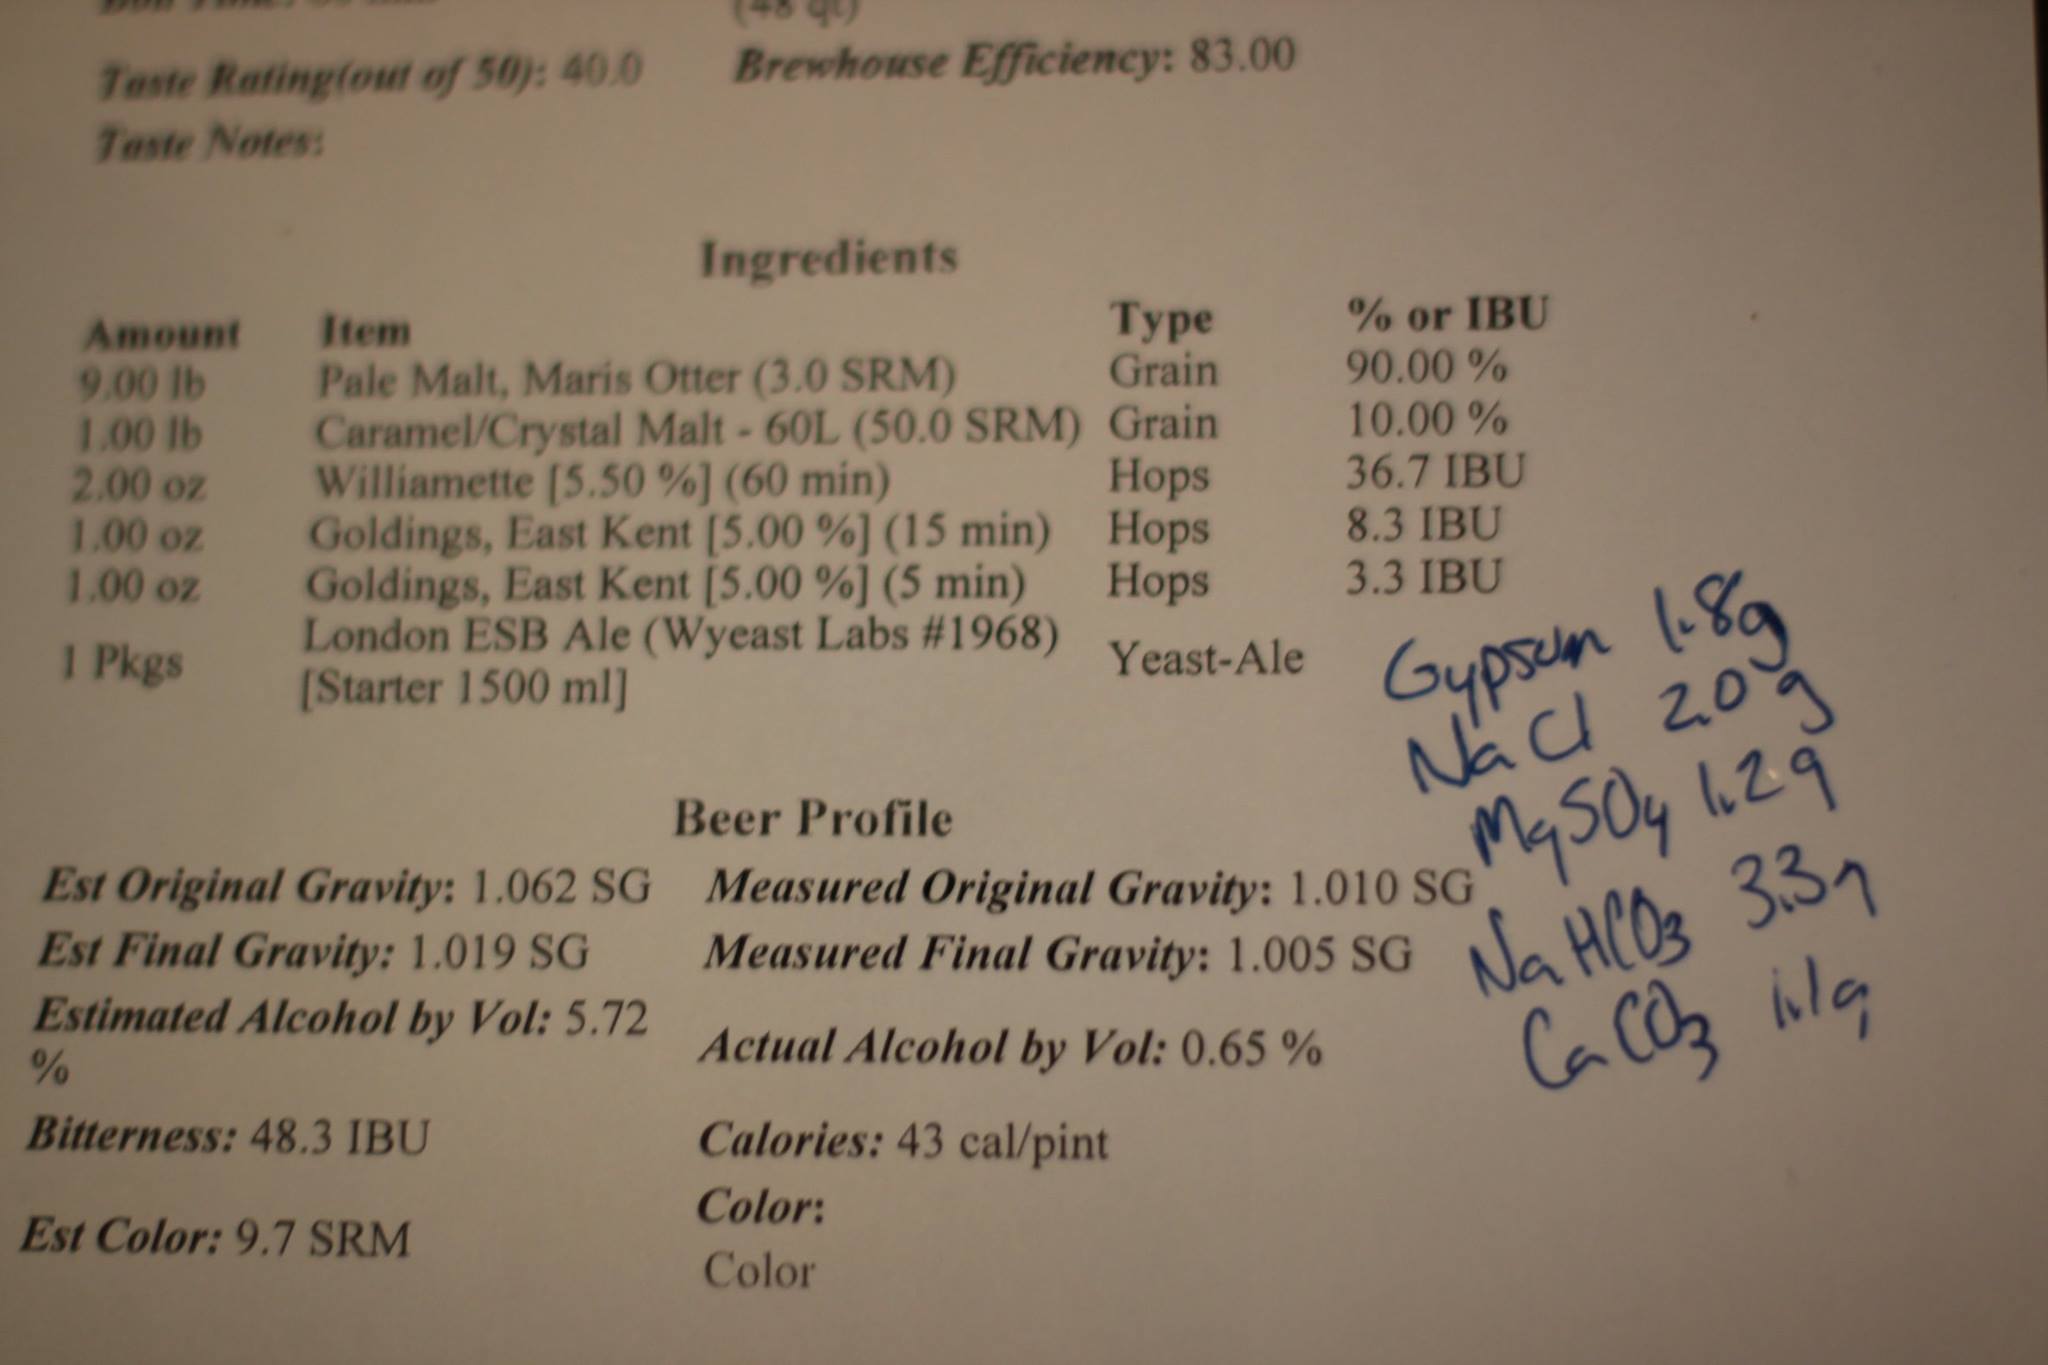 (48 qt)
Taste Rating(out of 50): 40.0 Brewhouse Efficiency: 83.00
Taste Notes:
Ingredients
Amount Item Type % or IBU
9.00 lb Pale Malt, Maris Otter (3.0 SRM) Grain 90.00 %
1.00 lb Caramel/Crystal Malt - 60L (50.0 SRM) Grain 10.00 %
2.00 oz Williamette [5.50 %] (60 min) Hops 36.7 IBU
1.00 oz Goldings, East Kent [5.00 %] (15 min) Hops 8.3 IBU
1.00 oz Goldings, East Kent [5.00 %] (5 min) Hops 3.3 IBU
1 Pkgs London ESB Ale (Wyeast Labs #1968)
[Starter 1500 ml] Yeast-Ale
Gypsum 1.8g
NaCl 2.0 g
MgSO4 1.2g
NaHCO3 3.3g
CaCO3 1.1g
Beer Profile
Est Original Gravity: 1.062 SG Measured Original Gravity: 1.010 SG
Est Final Gravity: 1.019 SG Measured Final Gravity: 1.005 SG
Estimated Alcohol by Vol: 5.72
% Actual Alcohol by Vol: 0.65 %
Bitterness: 48.3 IBU Calories: 43 cal/pint
Est Color: 9.7 SRM Color:
Color